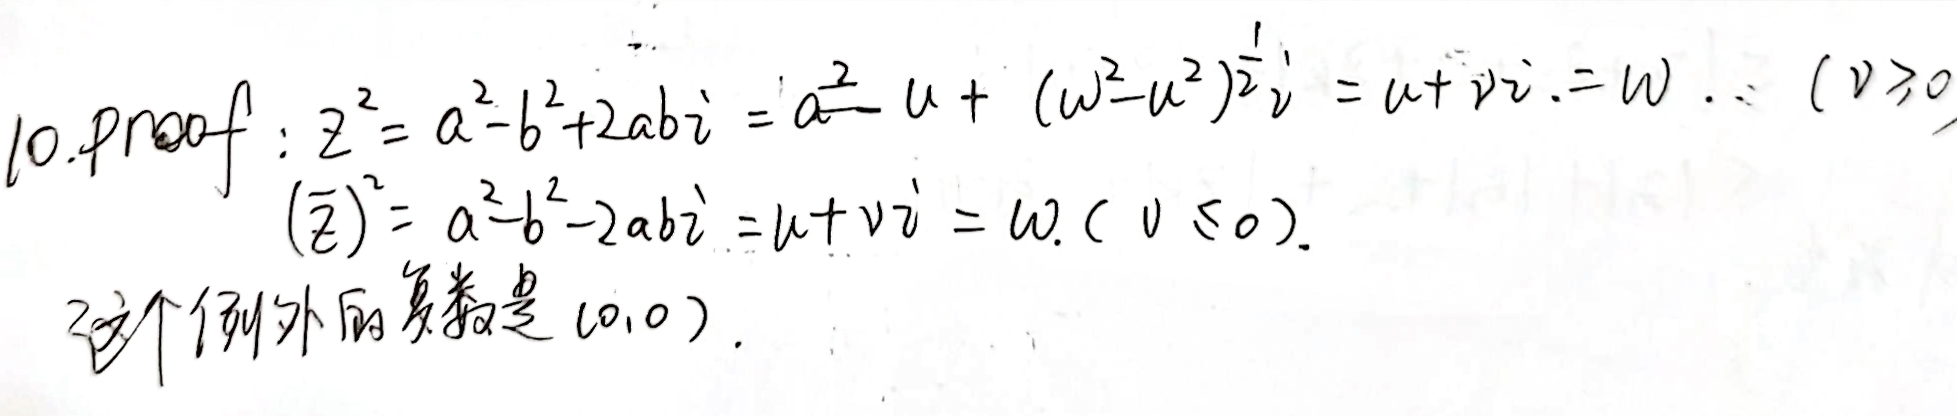 10. Proof: z² = a²-b²+2abi = u + (w²-u²)^{1/2}i = u+vi. = w. ∴ (v≥0
(z̄)² = a²-b²-2abi = u+vi = w. (v≤0).
这个例外的复数是(0,0).